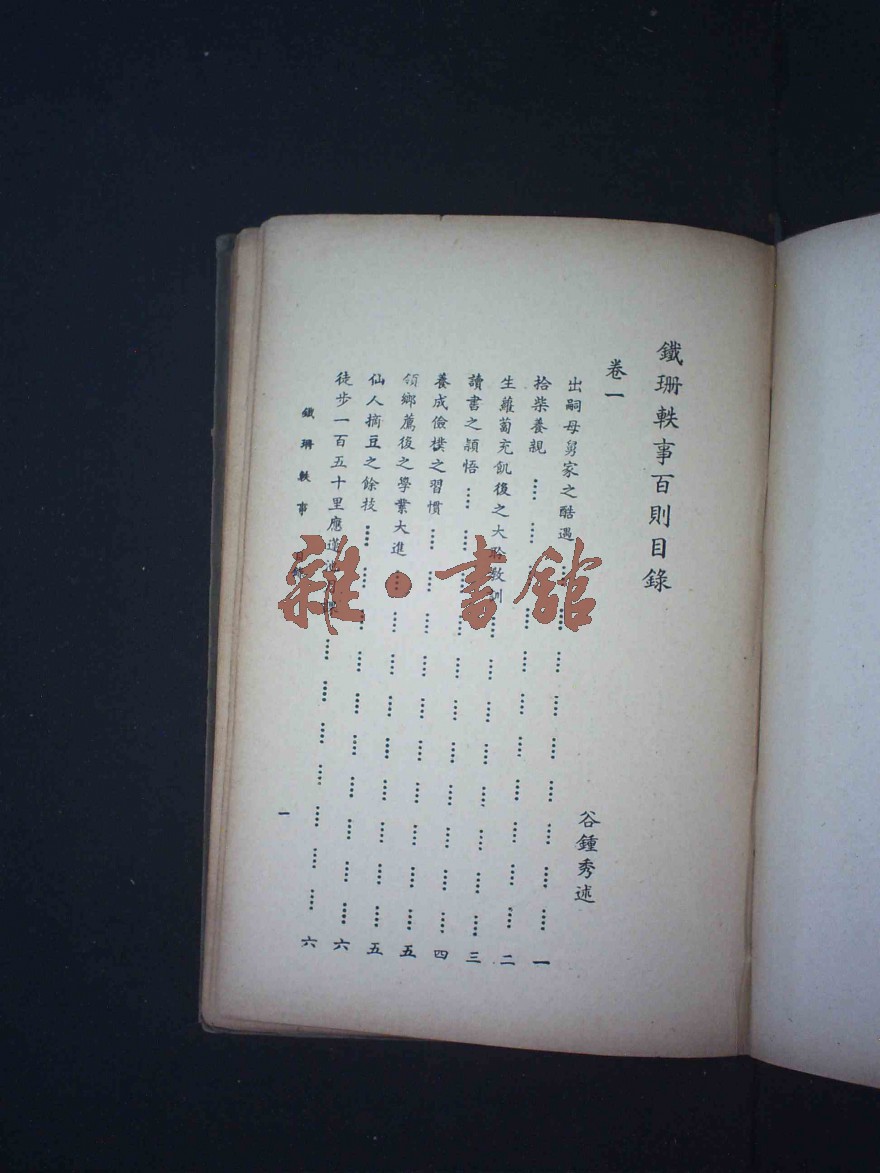 鐵珊軼事百則目錄
卷一
谷鍾秀述
出嗣母舅家之酷遇 …… 一
拾柴養親 …… 二
生蘿蔔充飢後之大聆教訓 …… 三
讀書之頴悟 …… 四
養成儉樸之習慣 …… 五
領鄉薦後之學業大進 …… 五
仙人摘豆之餘技 …… 六
徒步一百五十里應蓮池 …… 六
鐵珊軼事 目錄
一
雜·書館